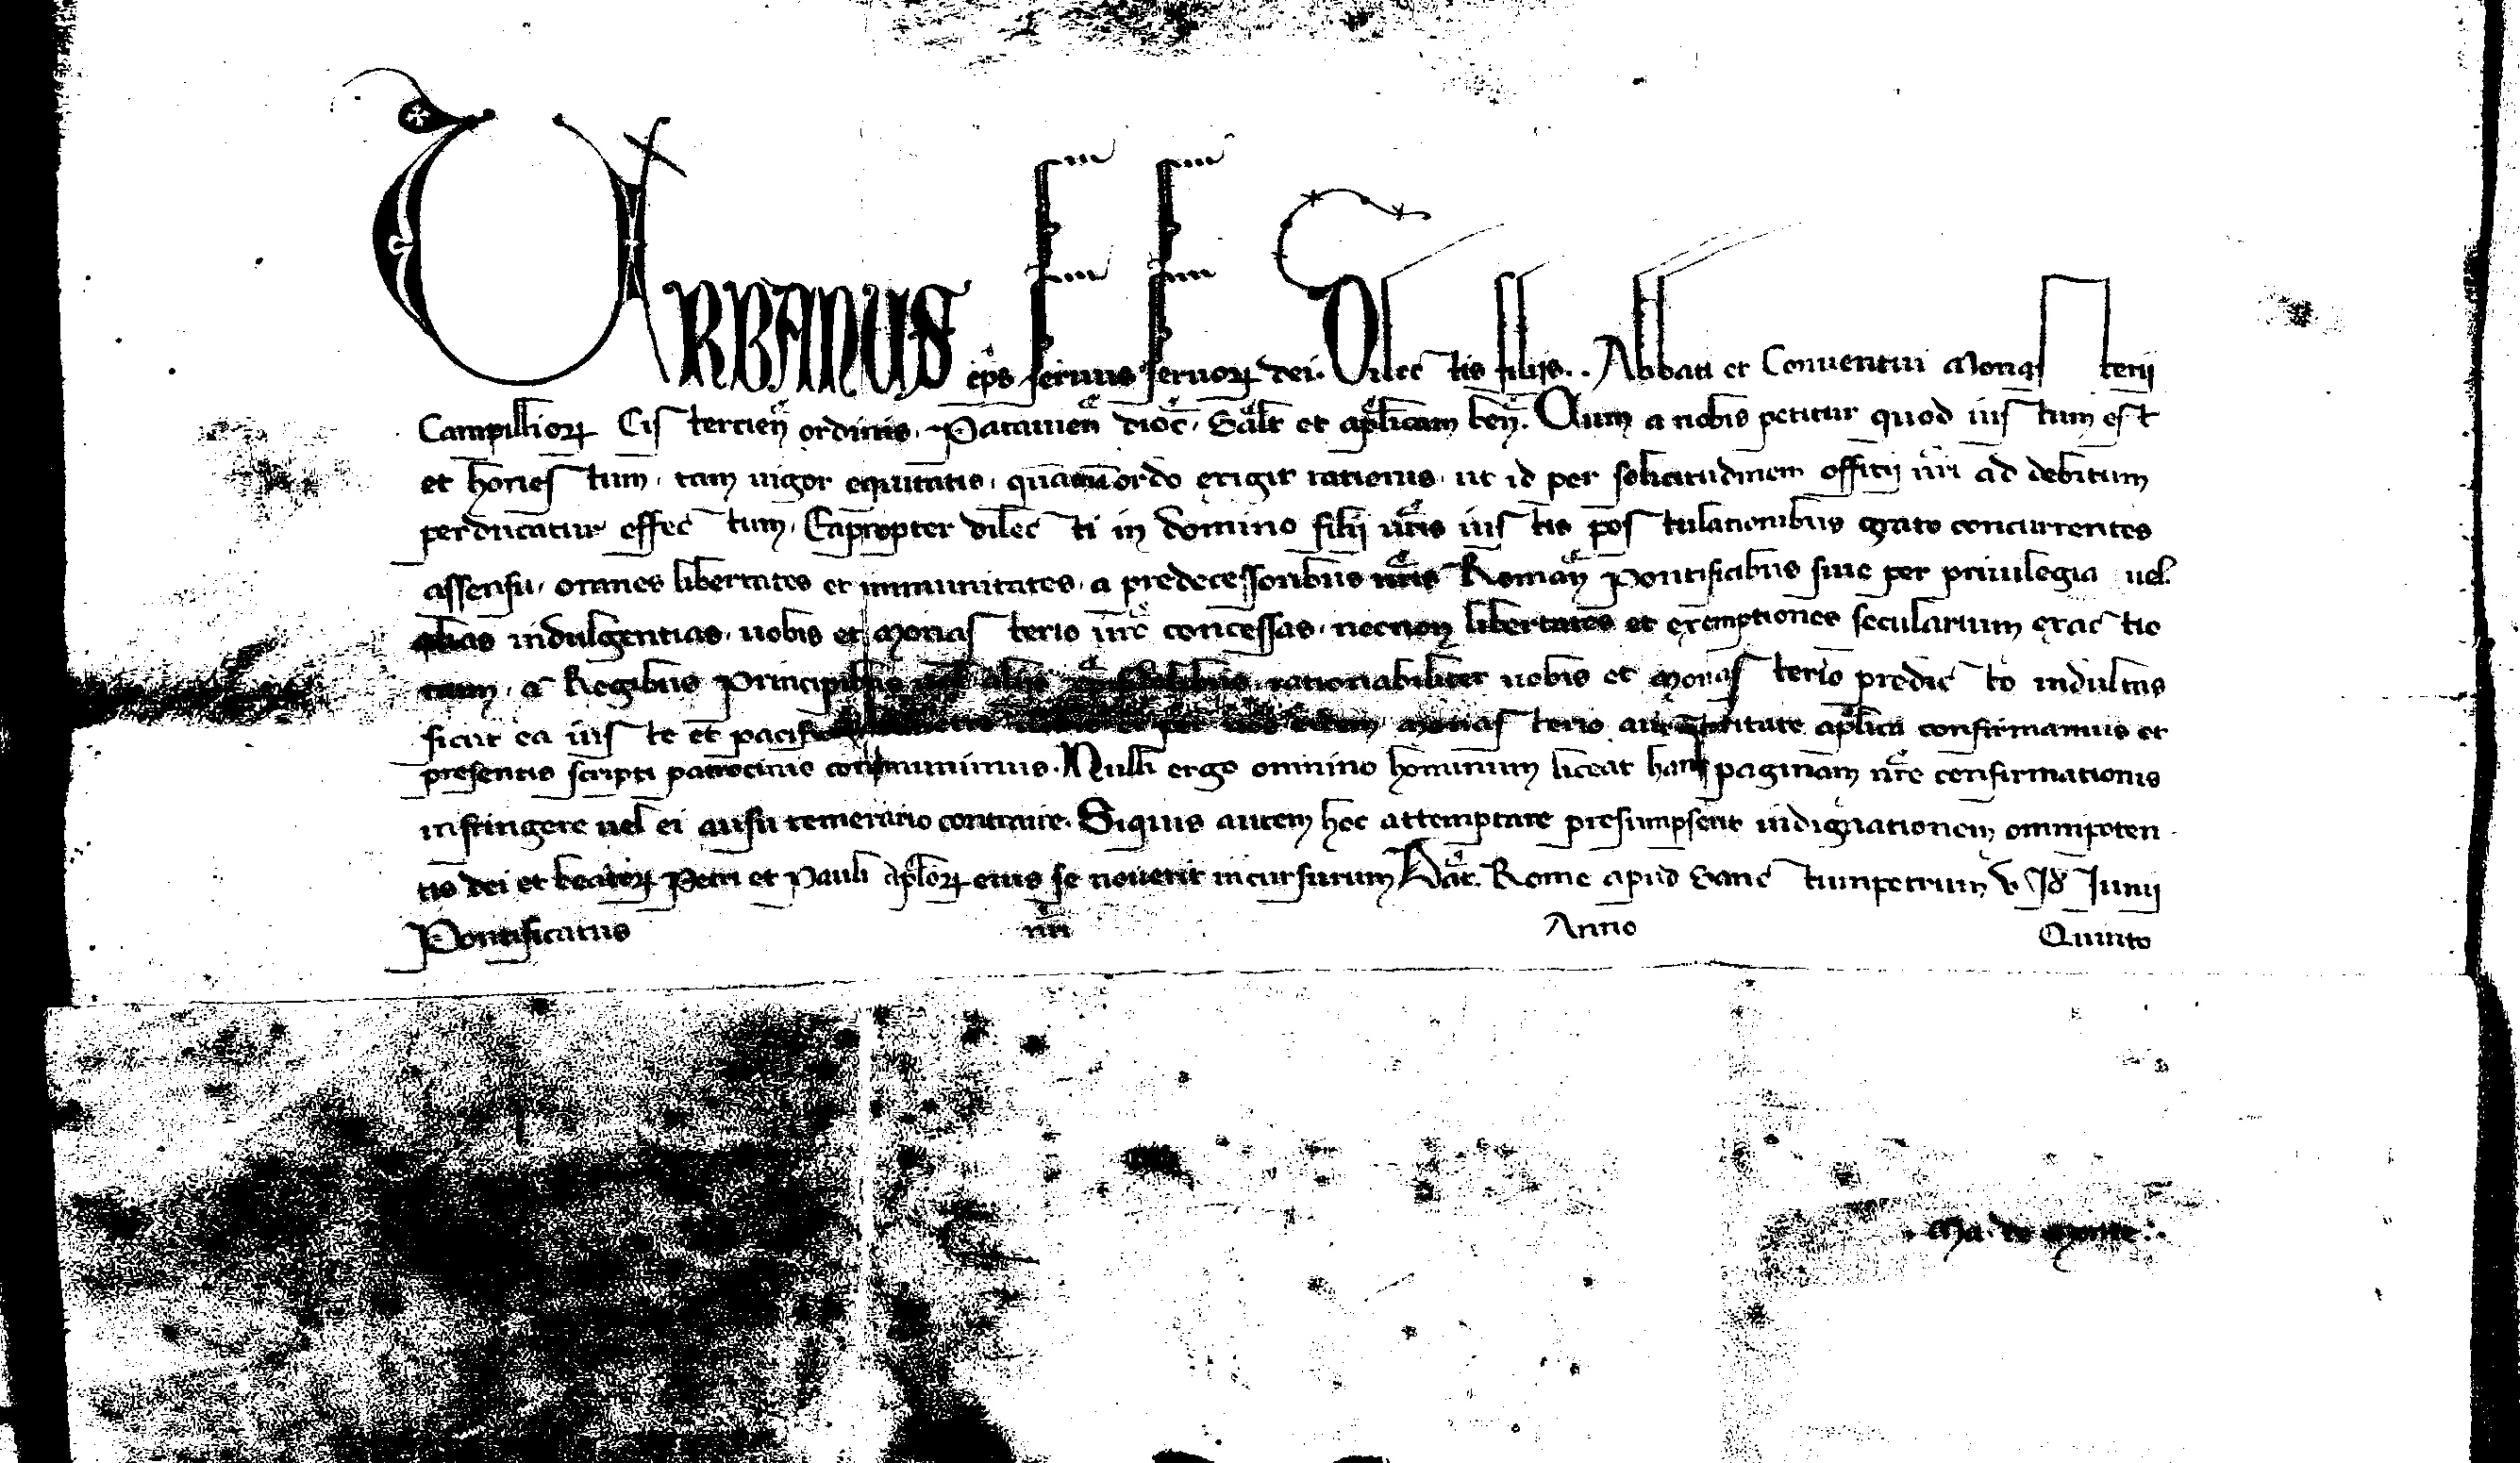 URBANUS ep̄s seruus seruoꝝ dei. Dilectis filijs . . Abbati et Conuentui Monasterij
Campililioꝝ Cistercień ordinis, Patauień dioc̄, Salt̄ et ap̄licam beń. Cum a nobis petitur quod iustum est
et honestum, tam uigor equitatis, quam ordo exigit rationis, ut id per solicitudinem officij nr̄i ad debitum
perducatur effectum, Eapropter dilecti in domino filij ur̄is iustis postulationibus grato concurrentes
assensu, omnes libertates et immunitates, a predecessoribus nr̄is Romań Pontificibus siue per priuilegia uel
alias indulgentias, uobis et Monasterio ur̄o concessas, necnon libertates et exemptiones secularium exactio
num, a Regibus Principibus uel alijs rationabiliter uobis et Monasterio predicto indultas
sicut ea iuste et pacifice et per uos eidem Monasterio auctoritate ap̄lica confirmamus et
presentis scripti patrocinio communimus. Nulli ergo omnino hominum liceat hanc paginam nr̄e confirmationis
infringere uel ei ausu temerario contraire. Siquis autem hoc attemptare presumpserit indignationem omnipoten
tis dei et beatoꝝ Petri et Pauli ap̄loꝝ eius se nouerit incursurum. Dat̄. Rome apud Sanctumpetrum v Id Iunij
Pontificatus nr̄i Anno Quinto
. Ma. de Monte :.